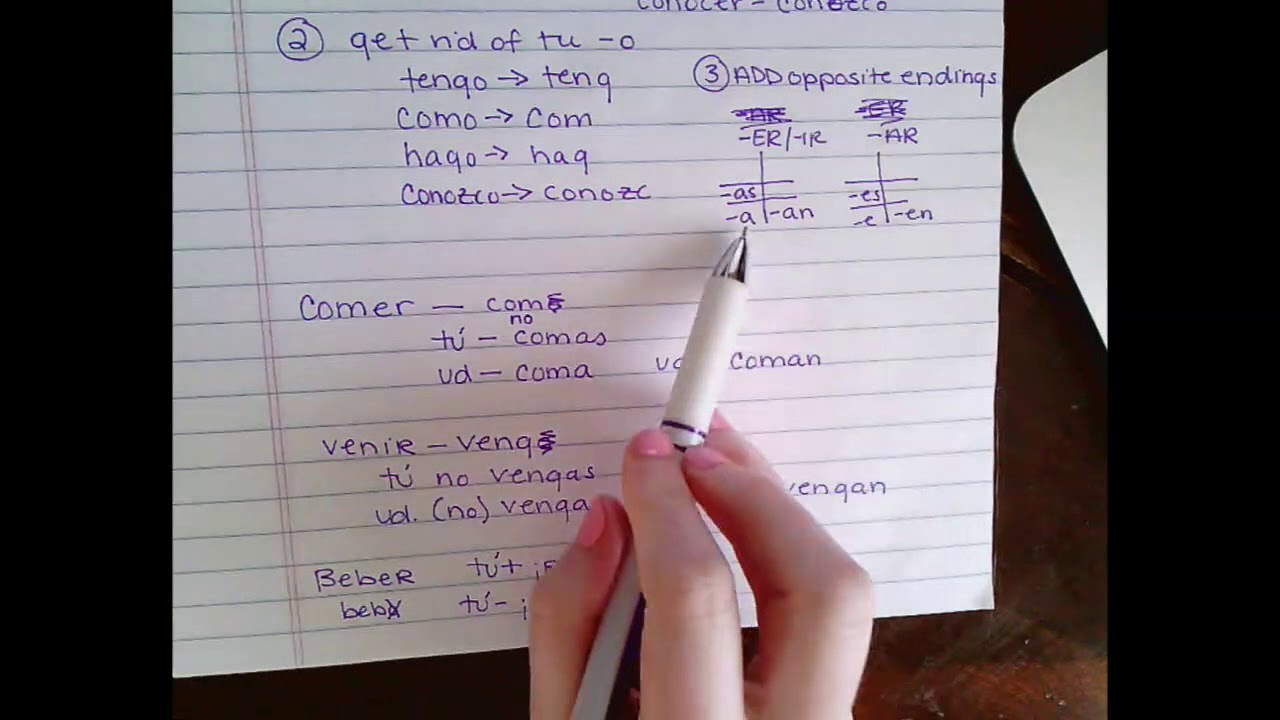 conocer - conozco
② get rid of tu -o
tengo → teng
como → com
hago → hag
conozco → conozc
③ ADD opposite endings
-ER/-IR
-as
-a -an
-AR
-es
-e -en
Comer — com
no
tú — comas
ud — coma coman
venir — veng
tú no vengas
ud. (no) venga vengan
Beber tú+
beb tú- ¡